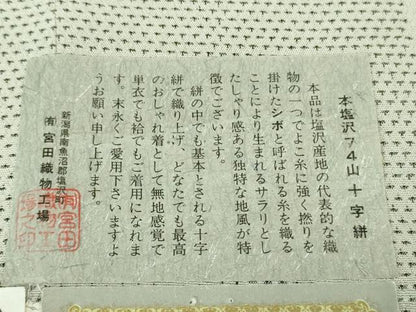 本塩沢74山十字絣
本品は塩沢産地の代表的な織
物の一つでよこ糸に強く撚りを
掛けたシボと呼ばれる糸を織る
ことにより生まれるサラリとし
たしゃり感ある独特な地風が特
徴でございます。
絣の中でも基本とされる十字
絣で織り上げ、どなたでも最高
のおしゃれ着として無地感覚で
単衣でも袷でもご着用になれま
す。末永くご愛用下さいますよ
うお願い申し上げます。
新潟県南魚沼郡塩沢町
有宮田織物工場